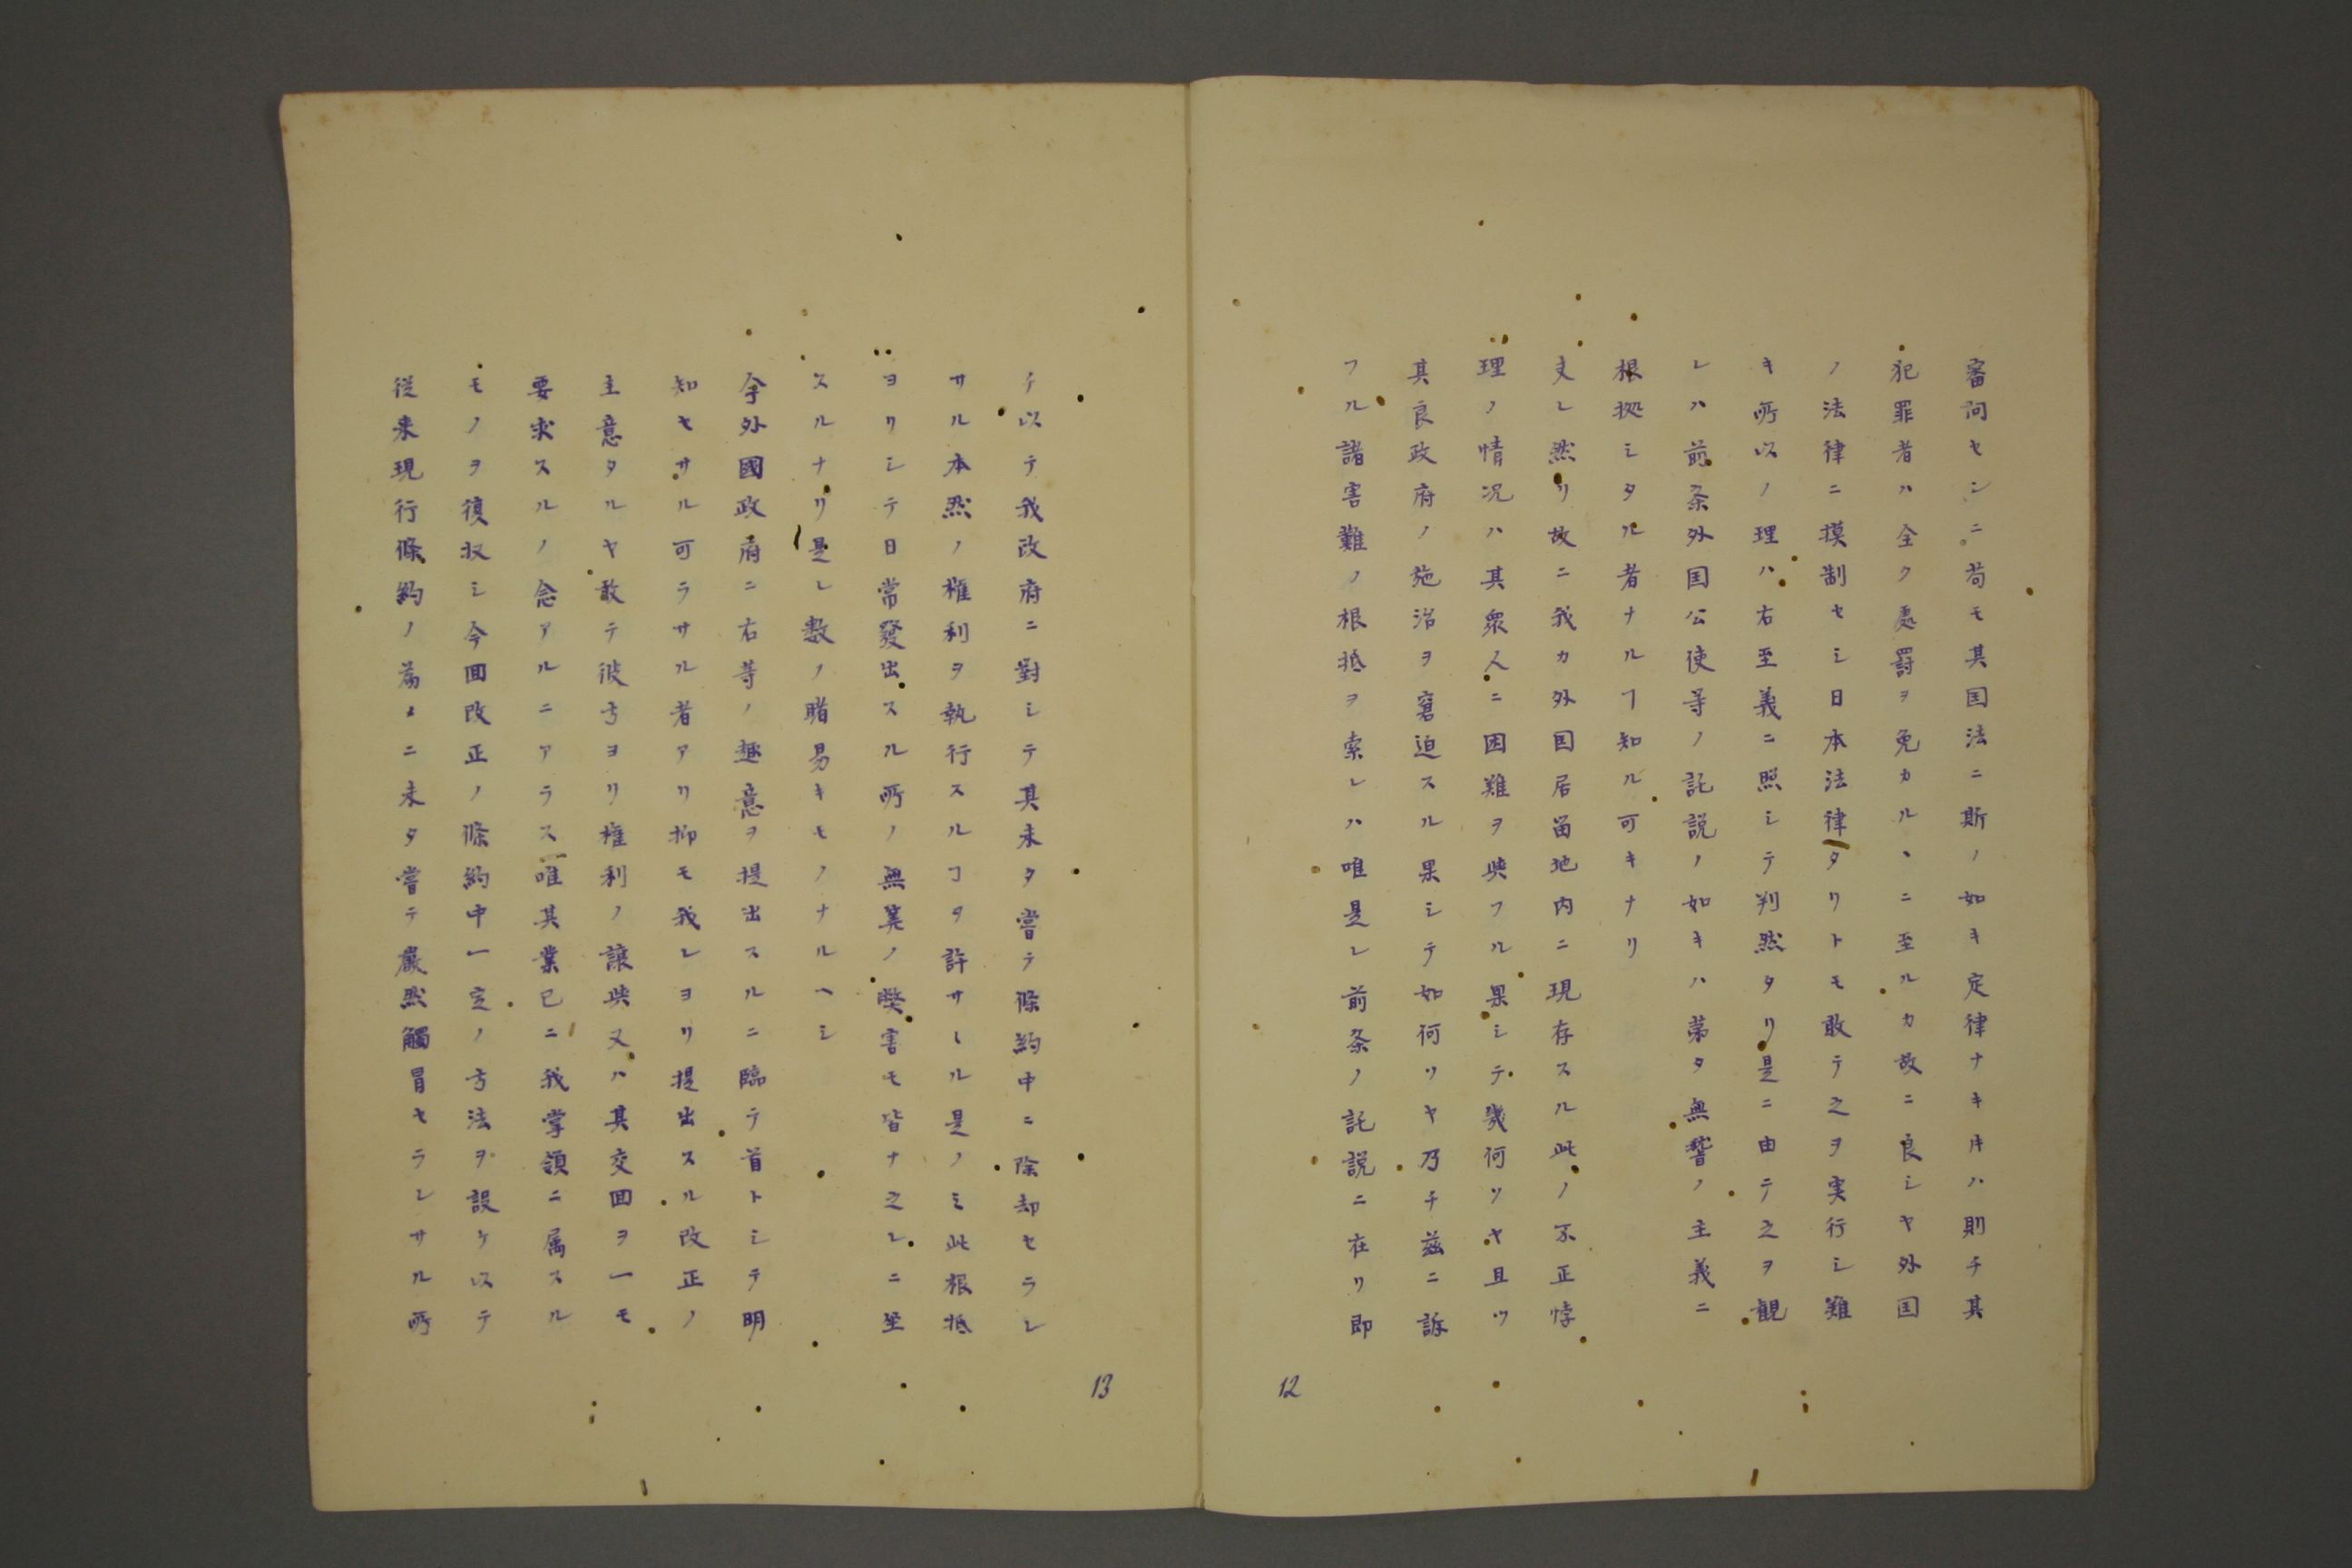 審問セシニ苟モ其国法ニ斯ノ如キ定律ナキ片ハ則チ其
犯罪者ハ全ク処罰ヲ免カルヽニ至ルカ故ニ良シヤ外国
ノ法律ニ摸制セシ日本法律タリトモ敢テ之ヲ実行シ難
キ所以ノ理ハ右至義ニ照シテ判然タリ是ニ由テ之ヲ観
レハ前条外国公使等ノ託説ノ如キハ第タ無瞥ノ主義ニ
根拠シタル者ナルヿ知ル可キナリ
夫レ然リ故ニ我カ外国居留地内ニ現存スル此ノ不正悖
理ノ情況ハ其衆人ニ困難ヲ与フル果シテ幾何ソヤ且ツ
其良政府ノ施治ヲ窘迫スル果シテ如何ソヤ乃チ茲ニ訴
フル諸害難ノ根抵ヲ索レハ唯是レ前条ノ託説ニ在リ即
12
チ以テ我政府ニ對シテ其未タ嘗テ條約中ニ除却セラレ
サル本然ノ権利ヲ執行スルヿタ許サヽル是ノミ此根抵
ヨリシテ日常發出スル所ノ無筭ノ弊害モ皆ナ之レニ坐
スルナリ是レ数ノ睹易キモノナルヘシ
今外國政府ニ右等ノ趣意ヲ提出スルニ臨テ首トシテ明
知セサル可ラサル者アリ抑モ我レヨリ提出スル改正ノ
主意タルヤ敢テ彼方ヨリ権利ノ譲与又ハ其交回ヲ一モ
要求スルノ念アルニアラス唯其業已ニ我掌領ニ属スル
モノヲ復収シ今回改正ノ條約中一定ノ方法ヲ設ケ以テ
従来現行條約ノ為メニ未タ嘗テ嚴然觸冒セラレサル所
13